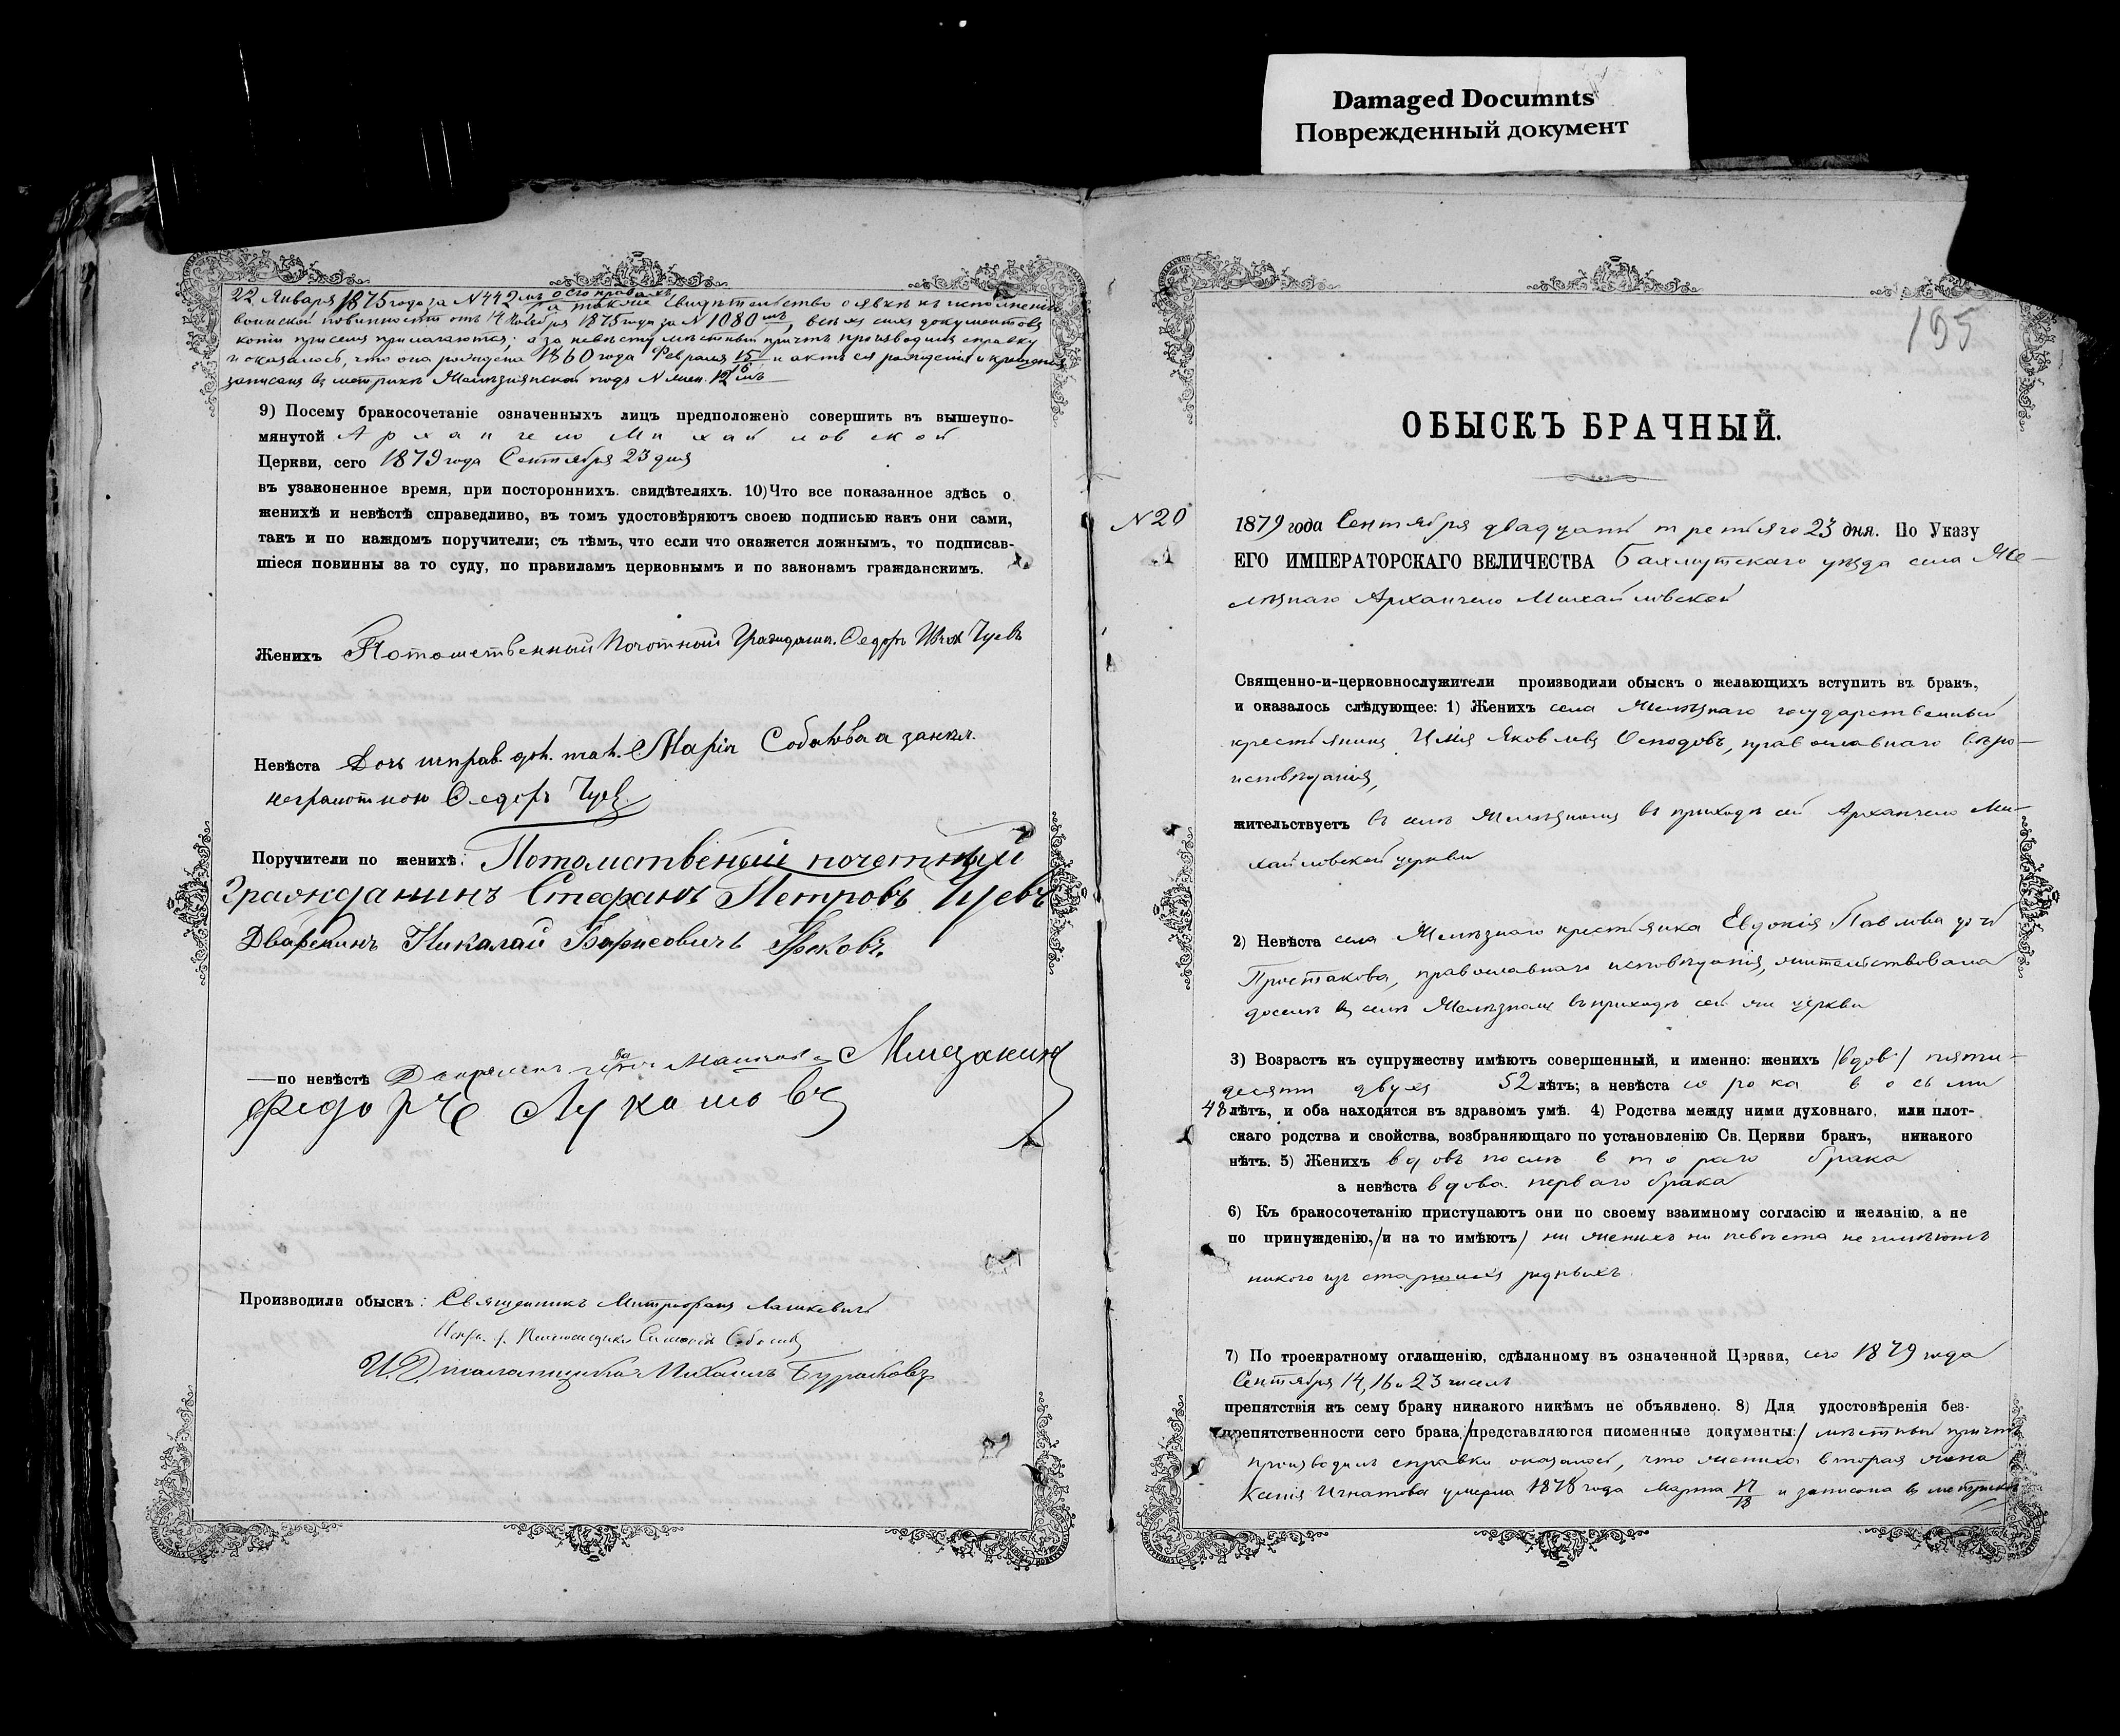 Damaged Documnts
Поврежденный документ
22 Января 1875 года за N 442мъ о его правахъ
а также свидѣтельство о явкѣ къ исполненію
воинской повинности отъ 14 Ноября 1875 года за N 1080мъ, всѣхъ сихъ документовъ
копіи при семъ прилагаются; а за невѣсту мѣстный причтъ производилъ справку
и оказалось, что она рождена 1860 года Февраля 15/16 и актъ ея рожденія и крещенія
записанъ въ метрикѣ подъ N жен. 12мъ
9) Посему бракосочетаніе означенныхъ лицъ предположено совершить въ вышеупо-
мянутой Архангело Михайловской
Церкви, сего 1879 года Сентября 23 дня
въ узаконенное время, при постороннихъ свидѣтеляхъ. 10) Что все показанное здѣсь о
женихѣ и невѣстѣ справедливо, въ томъ удостовѣряютъ своею подписью какъ они сами,
такъ и по каждомъ поручители; съ тѣмъ, что если что окажется ложнымъ, то подписав-
шіеся повинны за то суду, по правиламъ церковнымъ и по законамъ гражданскимъ.
Женихъ Потомственный Почотный Гражданин. Федоръ Чуевъ
Невѣста Дочь Марія
неграмотною Федоръ Чуев
Поручители по женихѣ: Потомственый почетный
Гражданинъ Стефанъ Петровъ Чуевъ
Дваренинъ Никалай Барисовичъ
—по невѣстѣ Дворянинъ
Федоръ Лукашовъ
Производили обыскъ: Священникъ Митрофанъ Лашкевичъ
И. Д. Михаилъ Бураковъ
195
ОБЫСКЪ БРАЧНЫЙ.
N 20
1879 года Сентября двадцать третьяго 23 дня. По Указу
ЕГО ИМПЕРАТОРСКАГО ВЕЛИЧЕСТВА Бахмутскаго уѣзда села Же-
лѣзнаго Архангело Михайловской
Священно-и-церковнослужители производили обыскъ о желающихъ вступить въ бракъ,
и оказалось слѣдующее: 1) Женихъ села Желѣзнаго государственный
крестьянинъ Илія Яковлевъ православнаго вѣро-
исповѣданія,
жительствуетъ въ селѣ Желѣзномъ въ приходѣ сей Архангело Ми-
хайловской церкви
2) Невѣста села Желѣзнаго крестьянка Евдокія Павлова дочь
Простакова, православнаго исповѣданія, жительствовала
доселѣ въ селѣ Желѣзномъ въ приходѣ сей же церкви
3) Возрастъ къ супружеству имѣютъ совершенный, и именно: женихъ /вдов/ пяти-
десяти двухъ 52 лѣтъ; а невѣста сорока восьми
48 лѣтъ, и оба находятся въ здравомъ умѣ. 4) Родства между ними духовнаго, или плот-
скаго родства и свойства, возбраняющаго по установленію Св. Церкви бракъ, никакого
нѣтъ. 5) Женихъ вдовъ послѣ втораго брака
а невѣста вдова перваго брака
6) Къ бракосочетанію приступаютъ они по своему взаимному согласію и желанію, а не
по принужденію, /и на то имѣютъ/ ни женихъ ни невѣста не имѣютъ
никого изъ старшихъ родныхъ
7) По троекратному оглашенію, сдѣланному въ означенной Церкви, сего 1879 года
Сентября 14, 16 и 23 чиселъ
препятствія къ сему браку никакого никѣмъ не объявлено. 8) Для удостовѣренія без-
препятственности сего брака, /представляются писменные документы:/ мѣстный причтъ
производилъ справки оказалось, что жениха вторая жена
Ксенія Игнатова умерла 1878 года Марта 17/18 и записана въ метрикѣ